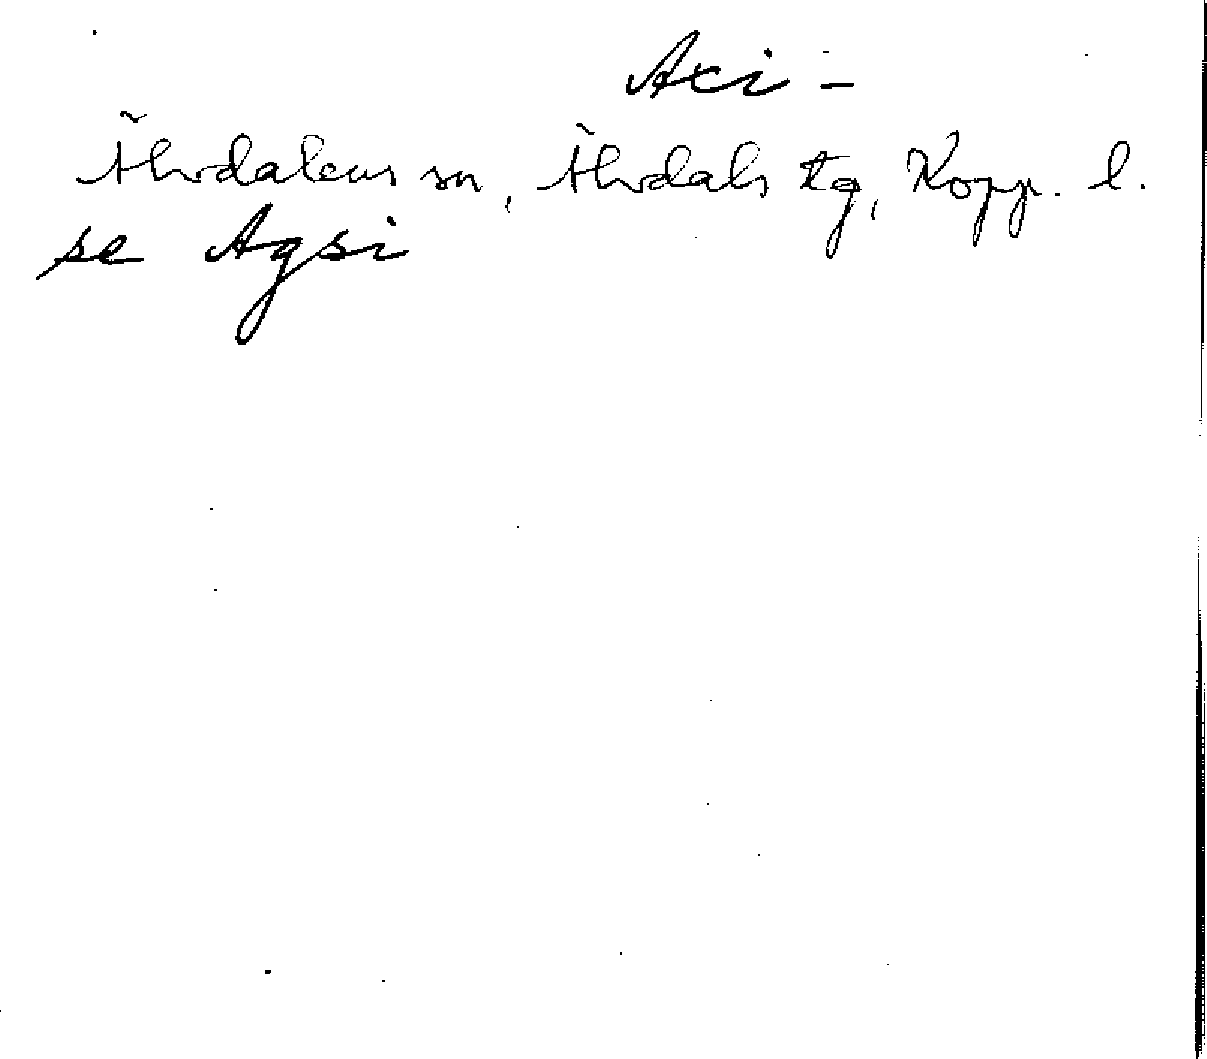 Axi -
Älvdalens sn, Älvdals tg, Kopp. l.
se Agsi